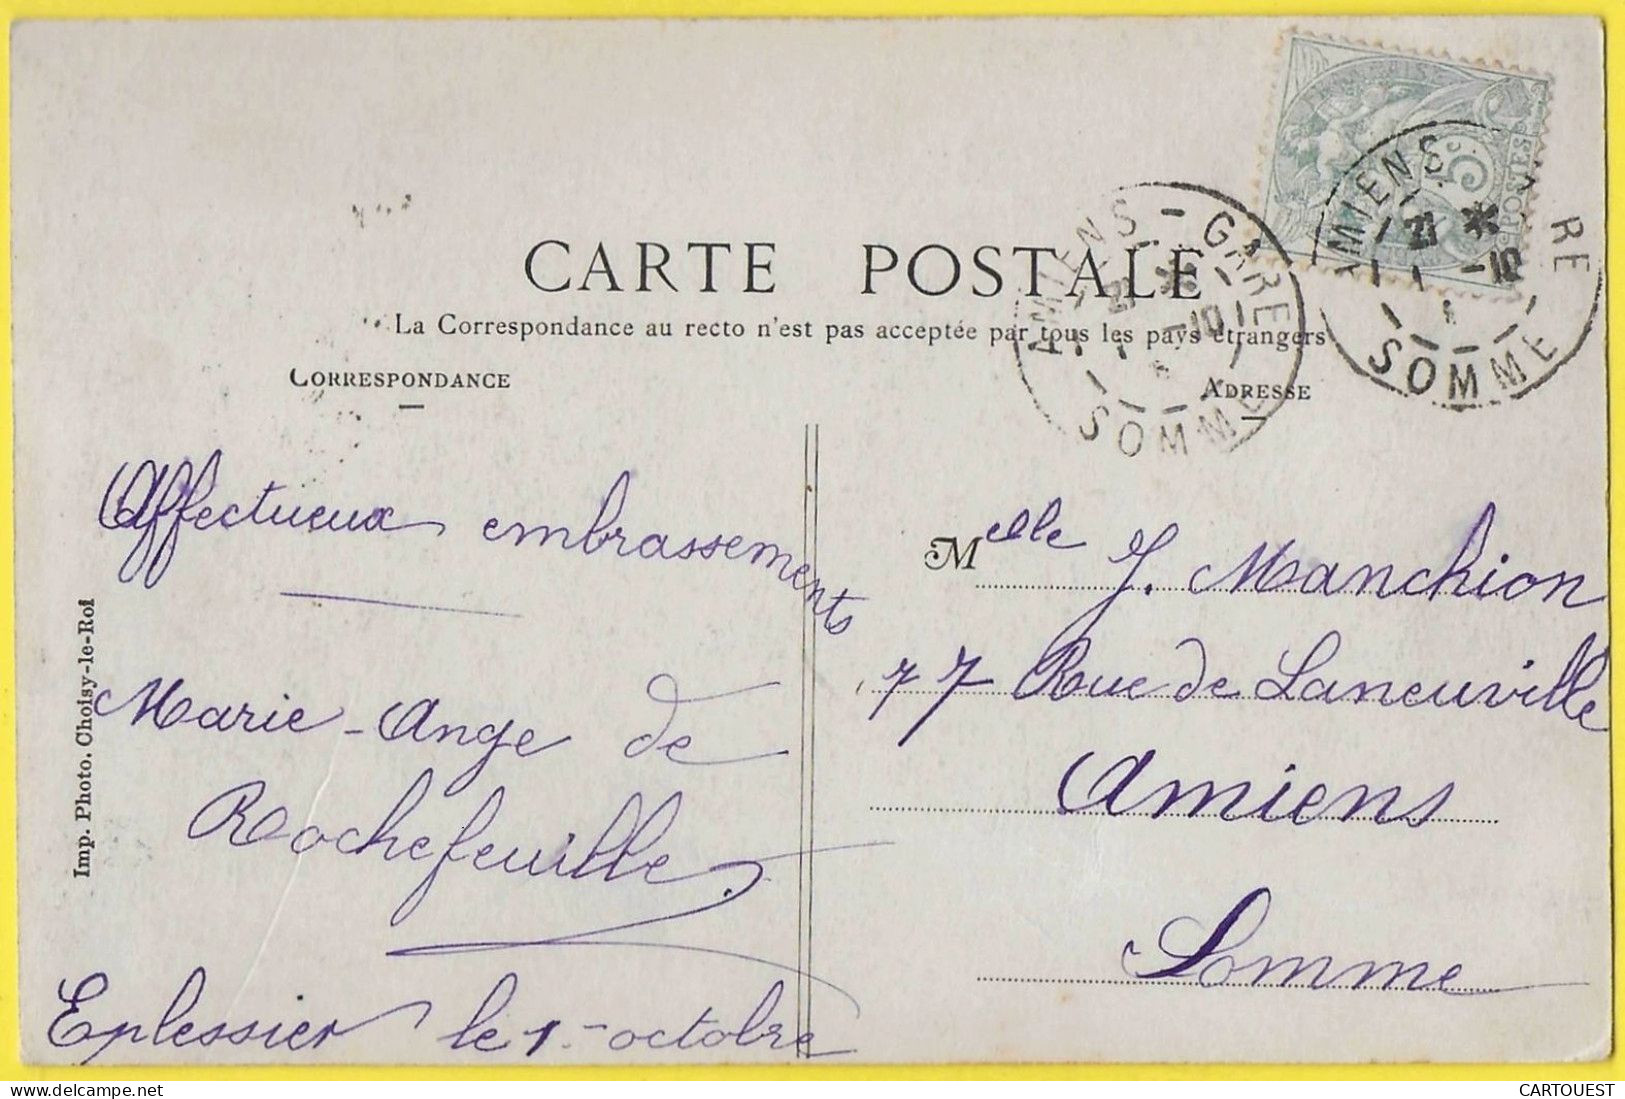 CARTE POSTALE
La Correspondance au recto n'est pas acceptée par tous les pays étrangers
CORRESPONDANCE
ADRESSE
5c
POSTES
AMIENS-GARE
21 *
1 -10
SOMME
AMIENS RE
21 *
1 -10
SOMME
Affectueux embrassements
Marie-Ange de
Rochefeuille
Eplessier le 1-octobre
Melle J. Manchion
77 Rue de Laneuville
Amiens
Somme
Imp. Photo. Choisy-le-Roi
CARTOUEST